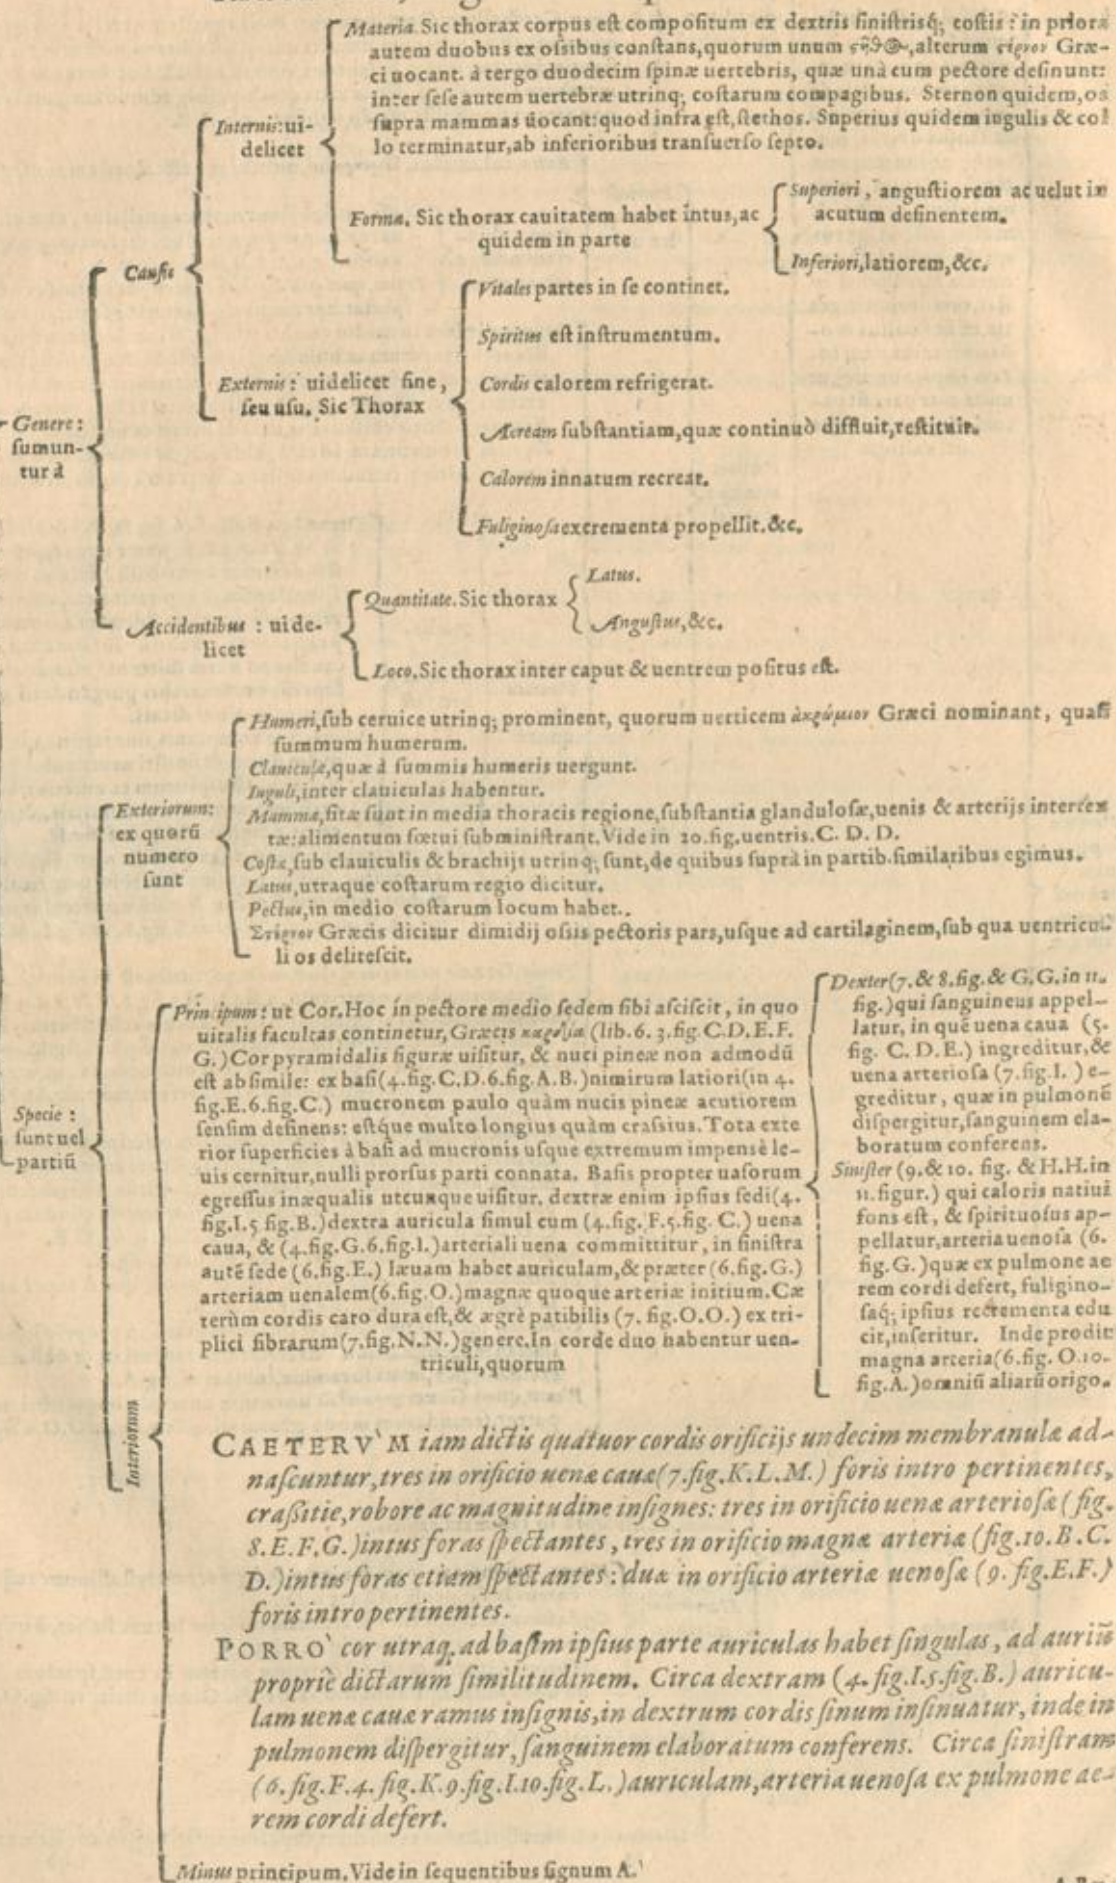 Materia. Sic thorax corpus est compositum ex dextris sinistrisq; costis: in priora
autem duobus ex ossibus constans, quorum unum ςῆθος, alterum ςέρνον Græ-
ci uocant. à tergo duodecim spinæ uertebris, quæ unà cum pectore desinunt:
inter sese autem uertebræ utrinq; costarum compagibus. Sternon quidem, os
supra mammas uocant: quod infra est, stethos. Superius quidem iugulis & col
lo terminatur, ab inferioribus transuerso septo.
Internis: ui-
delicet
Forma. Sic thorax cauitatem habet intus, ac
quidem in parte
Superiori, angustiorem ac uelut in
acutum desinentem.
Inferiori, latiorem, &c.
Causis
Vitales partes in se continet.
Spiritus est instrumentum.
Cordis calorem refrigerat.
Externis: uidelicet fine,
seu usu. Sic Thorax
Aeream substantiam, quæ continuò diffluit, restituit.
Calorem innatum recreat.
Fuliginosa excrementa propellit. &c.
Genere:
sumun-
tur à
Quantitate. Sic thorax
Latus.
Angustus, &c.
Accidentibus: uide-
licet
Loco. Sic thorax inter caput & uentrem positus est.
Humeri, sub ceruice utrinq; prominent, quorum uerticem ἀκρώμιον Græci nominant, quasi
summum humerum.
Clauiculæ, quæ à summis humeris uergunt.
Iuguli, inter clauiculas habentur.
Exteriorum:
ex quorū
numero
sunt
Mammæ, sitæ sunt in media thoracis regione, substantia glandulosæ, uenis & arterijs intertex
tæ: alimentum fœtui subministrant. Vide in 20. fig. uentris. C. D. D.
Costæ, sub clauiculis & brachijs utrinq; sunt, de quibus suprà in partib. similaribus egimus.
Latus, utraque costarum regio dicitur.
Pectus, in medio costarum locum habet.
Στέρνον Græcis dicitur dimidij ossis pectoris pars, usque ad cartilaginem, sub qua uentricu-
li os delitescit.
Specie:
sunt uel
partiū
Interiorum
Principum: ut Cor. Hoc in pectore medio sedem sibi asciscit, in quo
uitalis facultas continetur, Græcis καρδία (lib. 6. 3. fig. C. D. E. F.
G.) Cor pyramidalis figuræ uisitur, & nuci pineæ non admodū
est absimile: ex basi (4. fig. C. D. 6. fig. A. B.) nimirum latiori (in 4.
fig. E. 6. fig. C.) mucronem paulo quàm nucis pineæ acutiorem
sensim desinens: estque multo longius quàm crassius. Tota exte
rior superficies à basi ad mucronis usque extremum impensè le-
uis cernitur, nulli prorsus parti connata. Basis propter uasorum
egressus inæqualis utcunque uisitur. dextræ enim ipsius sedi (4.
fig. I. 5 fig. B.) dextra auricula simul cum (4. fig. F. 5. fig. C.) uena
caua, & (4. fig. G. 6. fig. I.) arteriali uena committitur, in sinistra
autē sede (6. fig. E.) læuam habet auriculam, & præter (6. fig. G.)
arteriam uenalem (6. fig. O.) magnæ quoque arteriæ initium. Cæ
terùm cordis caro dura est, & ægrè patibilis (7. fig. O. O.) ex tri-
plici fibrarum (7. fig. N. N.) genere. In corde duo habentur uen-
triculi, quorum
Dexter (7. & 8. fig. & G. G. in 11.
fig.) qui sanguineus appel-
latur, in quē uena caua (5.
fig. C. D. E.) ingreditur, &
uena arteriosa (7. fig. I.) e-
greditur, quæ in pulmonē
dispergitur, sanguinem ela-
boratum conferens.
Sinister (9. & 10. fig. & H. H. in
11. figur.) qui caloris natiui
fons est, & spirituosus ap-
pellatur, arteria uenosa (6.
fig. G.) quæ ex pulmone ae
rem cordi defert, fuligino-
saq; ipsius recrementa edu
cit, inseritur. Inde prodit
magna arteria (6. fig. O. 10.
fig. A.) omniū aliarū origo.
CAETERV̀M iam dictis quatuor cordis orificijs undecim membranulæ ad-
nascuntur, tres in orificio uenæ cauæ (7. fig. K. L. M.) foris intro pertinentes,
crassitie, robore ac magnitudine insignes: tres in orificio uenæ arteriosæ (fig.
8. E. F. G.) intus foras spectantes, tres in orificio magnæ arteriæ (fig. 10. B. C.
D.) intus foras etiam spectantes: duæ in orificio arteriæ uenosæ (9. fig. E. F.)
foris intro pertinentes.
PORRÒ cor utraq; ad basim ipsius parte auriculas habet singulas, ad auriū
propriè dictarum similitudinem. Circa dextram (4. fig. I. 5. fig. B.) auricu-
lam uenæ cauæ ramus insignis, in dextrum cordis sinum insinuatur, inde in
pulmonem dispergitur, sanguinem elaboratum conferens. Circa sinistram
(6. fig. F. 4. fig. K. 9. fig. I. 10. fig. L.) auriculam, arteria uenosa ex pulmone ae-
rem cordi defert.
Minus principum. Vide in sequentibus signum A.